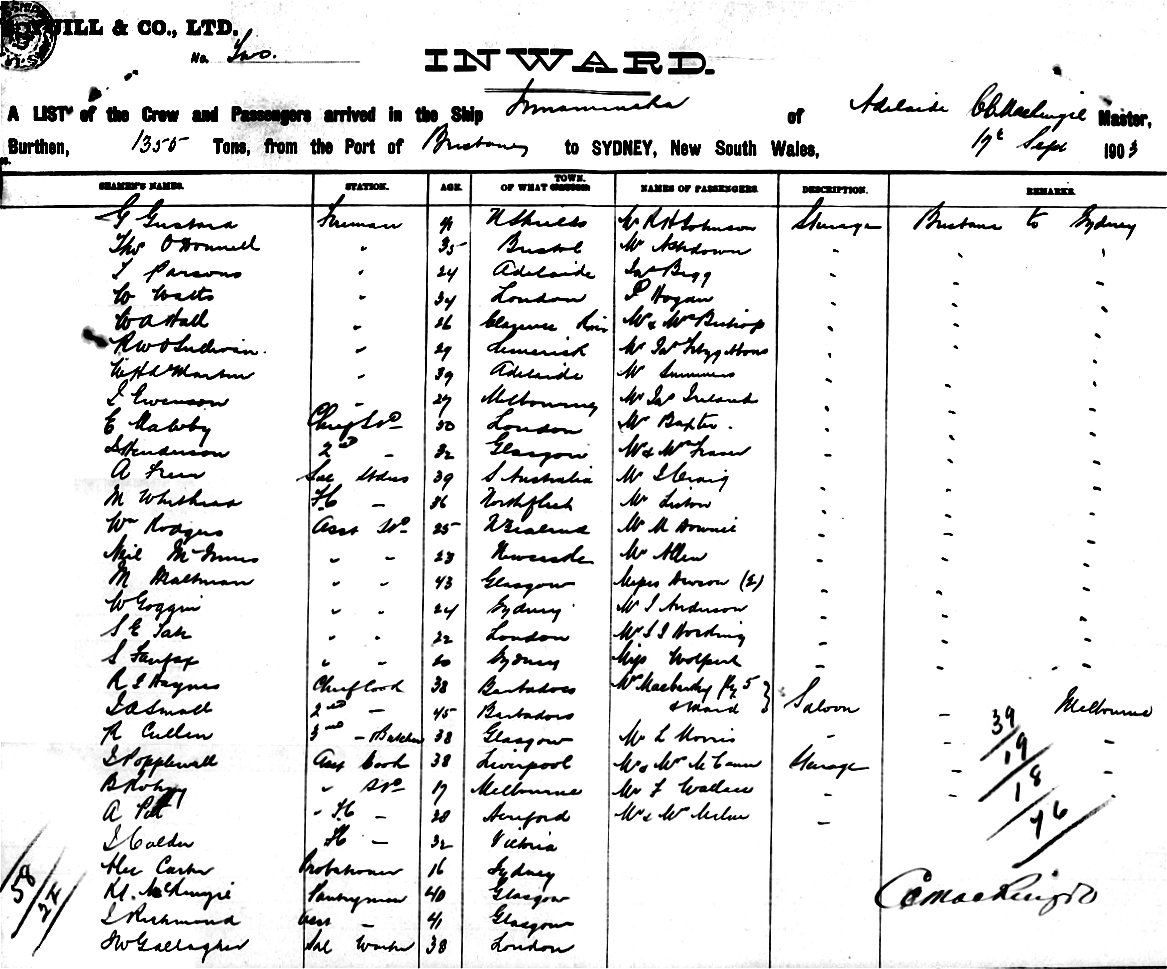 & CO., LTD.
No. Two.
INWARD.
A LIST of the Crew and Passengers arrived in the Ship Innamincka of Adelaide Master,
Burthen, 1355 Tons, from the Port of Brisbane to SYDNEY, New South Wales, 19 Sept 1903
SEAMEN'S NAMES. STATION. AGE. OF WHAT TOWN. NAMES OF PASSENGERS. DESCRIPTION. REMARKS.
G Fireman N Shields Mr R H Johnson Steerage Brisbane to Sydney
Thos O'Donnell " 35 Bristol Mr Ashdown " " "
T Parsons " 24 Adelaide Jas Begg " " "
W Watts " 34 London P Hogan " " "
W A Hall " 26 Clarence River Mr & Mrs Bishop " " "
R W O'Sullivan " 29 Limerick Mr Jas Fitzgibbons " " "
" 39 Adelaide Mr Summers " " "
" 27 Melbourne Mr Jas Ireland " " "
E Maltby Chief Std 30 London Mr Baxter " " "
J Henderson 2nd " 32 Glasgow Mr & Mrs Fraser " " "
A Sal 39 S Australia Mr J Craig " " "
M FC " 36 Northfleet Mr Linton " " "
Wm Rodgers Asst Std 25 N Zealand Mr M Downie " " "
Neil McInnes " " 23 Newcastle Mr Allen " " "
M Maltman " " 43 Glasgow Misses (2) " " "
W Goggin " " 24 Sydney Mr J Anderson " " "
S E Tate " " 22 London Mr S J Harding " " "
S Fairfax " " 20 Sydney Miss " " "
R J Haynes Chief Cook 38 Barbados Mr 5
J A Small 2nd " 45 Barbados & Maid } Saloon " Melbourne
R Cullen 3rd " Butcher 38 Glasgow Mr L Norris " " 39
J Popplewell Asst Cook 38 Liverpool Mr & Mrs McCann Steerage " 19
B " Std 19 Melbourne Mr F Wallace " " 18
A " FC " 28 Hereford Mr & Mrs Milne " 76
J Calder FC " 32 Victoria
Alec Carter 16 Sydney
58 McKenzie Pantryman 40 Glasgow C C MacKenzie
24 J Richmond Asst " 41 Glasgow
J W Gallagher Sal Waiter 38 London